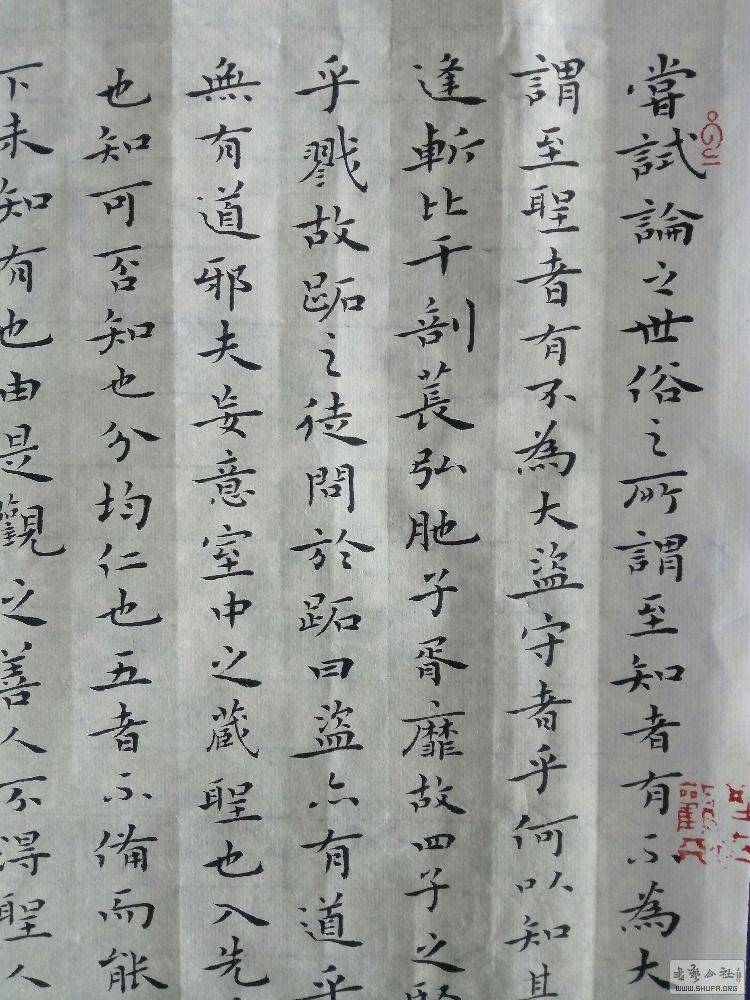 嘗試論之世俗之所謂至知者有不為大
謂至聖者有不為大盜守者乎何以知其
逢斬比干剖萇弘胣子胥靡故四子之賢
乎戮故跖之徒問於跖曰盜亦有道乎
無有道邪夫妄意室中之藏聖也入先
也知可否知也分均仁也五者不備而能
下未知有也由是觀之善人不得聖人
WWW.SHUFA.ORG